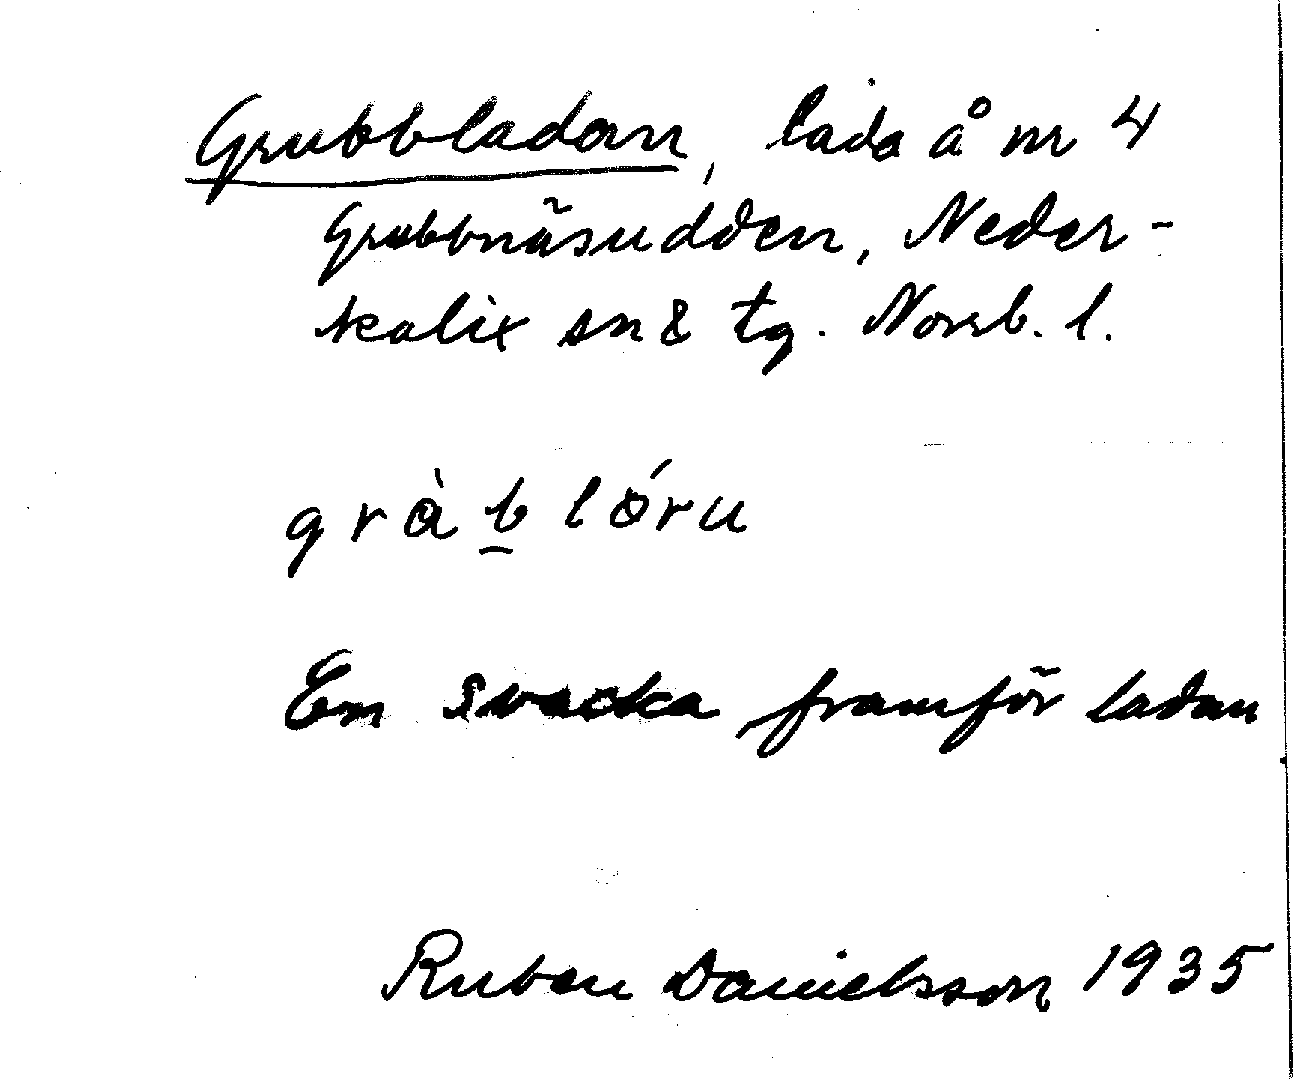 Grubbladan, lada å nr 4
Grubbnäsudden, Neder-
kalix sn & tg. Norrb. l.
gràb̲lóru
En svacka framför ladan
Ruben Danielsson 1935